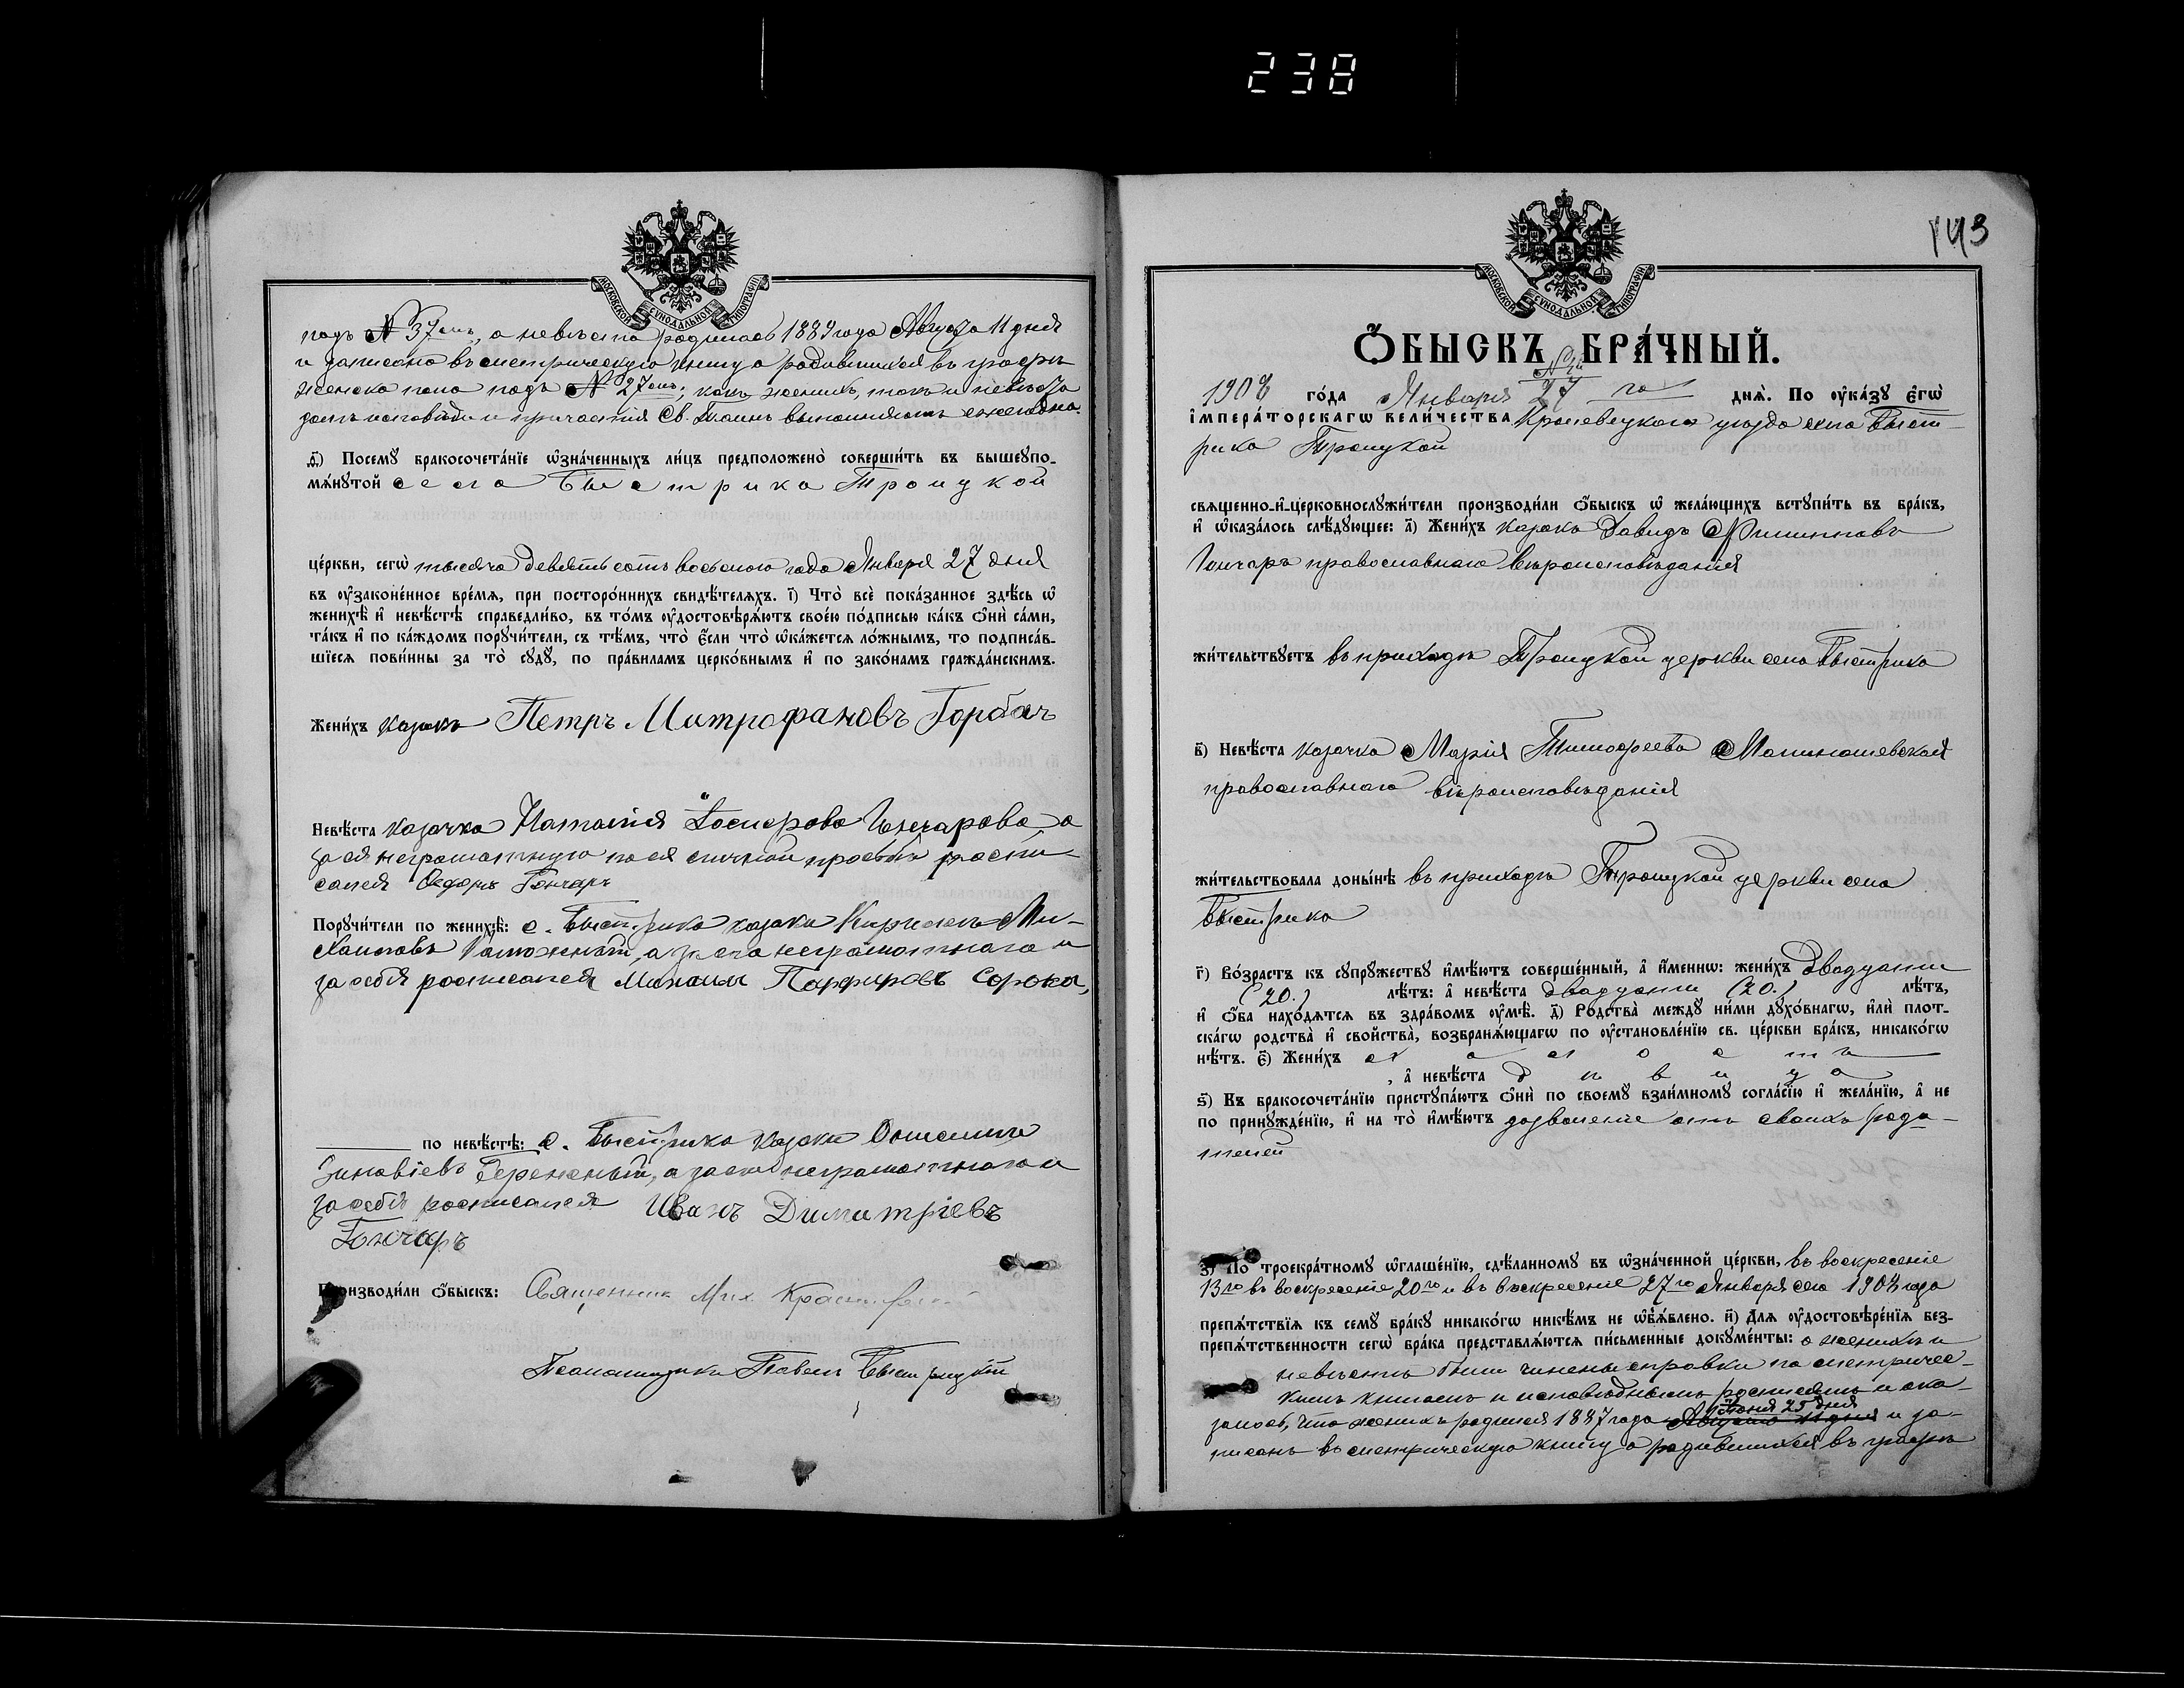 238
МОСКОВСКОЙ СѴНОДАЛЬНОЙ ТИПОГРАФІИ
подъ № 37емъ, а невѣста родилась 1889 года Августа 11 дня
и записана въ метрическую книгу о родившихся въ графѣ
женска пола подъ № 27емъ; какъ женихъ, такъ и невѣста
долгъ исповѣди и причастія Св. Таинъ выполняютъ ежегодно.
ѳ҃) Посемꙋ бракосочета́нїе ѡ҆зна́ченныхъ ли́цъ предположено̀ соверши́ть въ вышеꙋпо-
мѧ́нꙋтой села Быстрика Троицкой
це́ркви, сегѡ̀ тысяча девятьсотъ восьмого года Января 27 дня
въ ᲂу҆зако́не́нное вре́мѧ, при посторо́ннихъ свидѣ́телѧхъ. і҃) Что̀ всѐ пока́занное здѣ́сь ѡ҆
женихѣ̀ и҆ невѣ́стѣ справедли́во, въ то́мъ ᲂу҆достовѣрѧ́ютъ свое́ю по́дписью ка́къ ѻ҆нѝ са́ми,
та́къ и҆ по ка́ждомъ порꙋчи́тели, съ тѣ́мъ, что̀ є҆́сли что̀ ѡ҆ка́жетсѧ ло́жнымъ, то подписа́в-
шїесѧ пови́нны за то̀ сꙋдꙋ̀, по пра́виламъ церко́внымъ и҆ по зако́намъ гражда́нскимъ.
Жени́хъ козакъ Петръ Митрофановъ Горбач
Невѣ́ста козачка Наталія Гончарова, а
за ея неграмотную по ея личной просьбѣ роспи-
сался Гончаръ
Порꙋчи́тели по женихѣ̀: с. Быстрика козаки Ми-
хаиловъ а за его неграмотнаго и
за себя росписался Михаилъ Парфировъ Сорока,
по невѣ́стѣ: с. Быстрика козаки
Зиновіевъ а за его неграмотнаго и
за себя росписался Иванъ Димитріевъ
Гончаръ
Производи́ли ѻ҆́быскъ: Священник Мих.
Псаломщикъ Павелъ Быстрицкій
143
МОСКОВСКОЙ СѴНОДАЛЬНОЙ ТИПОГРАФІИ
Ѻ҆́БЫСКЪ БРА́ЧНЫЙ.
1908 го́да Января 27 го днѧ̀. По ᲂу҆ка́зꙋ є҆гѡ̀
і҆мпера́торскагѡ вели́чества Кролевецкого уѣзда села Быст-
рика Троицкой
свѧщенно-и҆-церковнослꙋжи́тели производи́ли ѻ҆́быскъ ѡ҆ жела́ющихъ встꙋпи́ть въ бра́къ,
и҆ ѡ҆каза́лось слѣ́дꙋющее: а҃) Жени́хъ козакъ Давидъ
Гончаръ православнаго вѣроисповѣданія
жи́тельствꙋетъ въ приходѣ Троицкой церкви села Быстрика
в҃) Невѣ́ста козачка Марія Тимофеева
православнаго вѣроисповѣданія
жи́тельствовала доны́нѣ въ приходѣ Троицкой церкви села
Быстрика
г҃) Во́зрастъ къ сꙋпрꙋжествꙋ и҆мѣ́ютъ соверше́нный, а҆ и҆́меннѡ: жени́хъ двадцати
(20.) лѣ́тъ: а҆ невѣ́ста двадцати (20.) лѣ́тъ,
и҆ ѻ҆́ба нахо́дѧтсѧ въ здра́вомъ ᲂу҆мѣ̀. д҃) Родства̀ междꙋ ни́ми дꙋхо́внагѡ, и҆лѝ плот-
ска́гѡ родства̀ и҆ сво́йства̀, возбранѧ́ющагѡ по ᲂу҆становле́нїю св. це́ркви бра́къ, никако́гѡ
нѣ́тъ. є҃) Жени́хъ холостъ
, а҆ невѣ́ста дѣвица
ѕ҃) Къ бракосочета́нїю пристꙋпа́ютъ ѻ҆нѝ по своемꙋ̀ взаи́мномꙋ согла́сїю и҆ жела́нїю, а҆ не
по принꙋжде́нїю, и҆ на то̀ и҆мѣ́ютъ дозволеніе отъ своихъ роди-
телей
з҃) По троекра́тномꙋ ѡ҆глаше́нїю, сдѣ́ланномꙋ въ ѡ҆зна́ченной це́ркви, въ воскресеніе
13го въ воскресеніе 20го и въ воскресеніе 27го Января сего 1908 года
препѧ́тствїѧ къ семꙋ̀ бра́кꙋ никако́гѡ никѣ́мъ не ѡ҆б̾ѧ́влено. и҃) Длѧ ᲂу҆достовѣре́нїѧ без-
препѧ́тственности сегѡ̀ бра́ка представлѧ́ютсѧ пи́сьменные докꙋме́нты: о женихѣ и
невѣстѣ были чинены справки по метричес-
кимъ книгамъ и исповѣднымъ росписямъ и ока-
залось, что женихъ родился 1887 года Августа 11 дня Іюня 25 дня и за-
писанъ въ метрическую книгу о родившихся въ графѣ